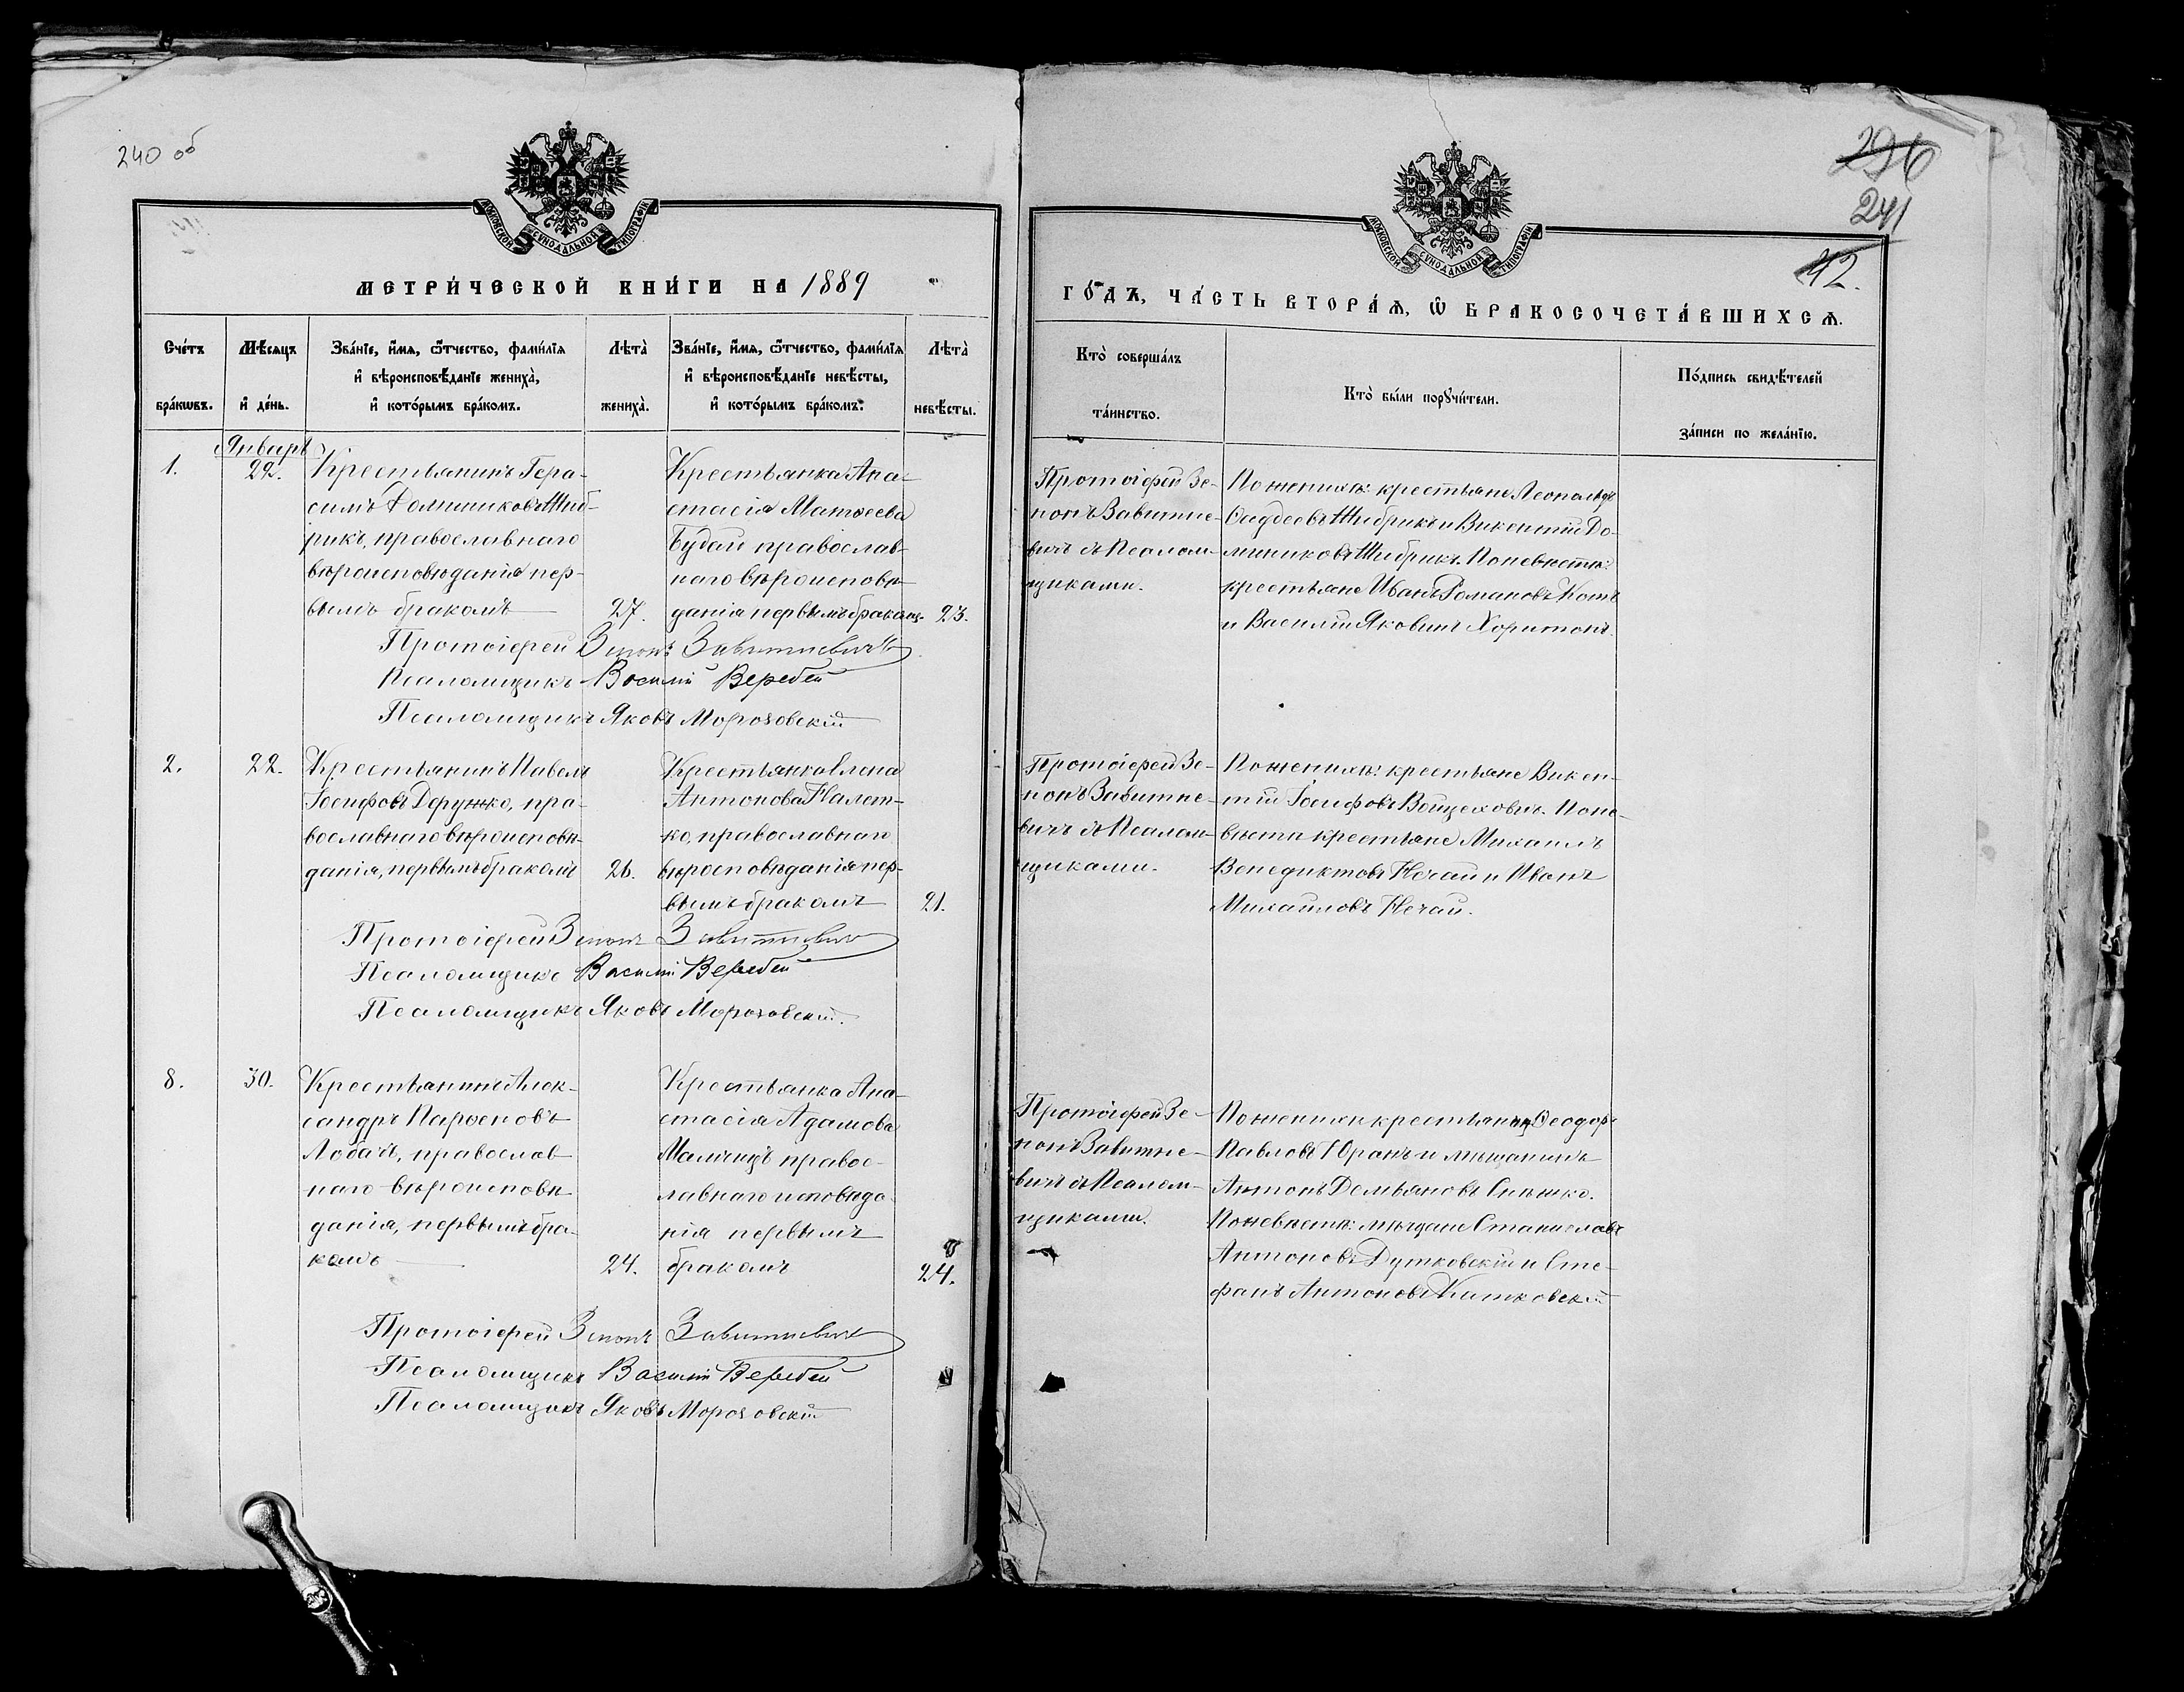 240 об
МОСКОВСКОЙ СѴНОДАЛЬНОЙ ТИПОГРАФІИ
МЕТРИ́ЧЕСКОЙ КНИ́ГИ НА 1889
Сче́тъ бра́кѡвъ.
Мѣ́сяцъ и҆ де́нь.
Зва́нїе, и҆́мя, ѻ҆́тчество, фами́лїя
и҆ вѣроисповѣ́данїе жениха̀,
и҆ кото́рымъ бра́комъ.
Лѣта̀ жениха̀.
Зва́нїе, и҆́мя, ѻ҆́тчество, фами́лїя
и҆ вѣроисповѣ́данїе невѣ́сты,
и҆ кото́рымъ бра́комъ.
Лѣта̀ невѣ́сты.
1.
Январь
22.
Крестьянинъ Гера-
симъ Доминиковъ Шиб-
рикъ, православнаго
вѣроисповѣданія пер-
вымъ бракомъ
27.
Крестьянка Ана-
стасія Матѳеева
Будай православ-
наго вѣроисповѣ-
данія первымъ бракомъ.
23.
Протоіерей Зенонъ Завитневичъ
Псаломщикъ Василій Веребей
Псаломщикъ Яковъ Морозовскій
2.
22.
Крестьянинъ Павелъ
Іосифовъ Дерунко, пра-
вославнаго вѣроисповѣ-
данія, первымъ бракомъ
26.
Крестьянка Елена
Антонова Налет-
ко, православнаго
вѣроисповѣданія пер-
вымъ бракомъ
21.
Протоіерей Зенонъ Завитневичъ
Псаломщикъ Василій Веребей
Псаломщикъ Яковъ Морозовскій.
8.
30.
Крестьянинъ Алек-
сандръ Парѳеновъ
Лобачъ, православ-
наго вѣроисповѣ-
данія, первымъ бра-
комъ
24.
Крестьянка Ана-
стасія Адамова
правос-
лавнаго исповѣда-
нія первымъ
бракомъ
24.
Протоіерей Зенонъ Завитневичъ
Псаломщикъ Василій Веребей
Псаломщикъ Яковъ Морозовскій
296
241
42.
МОСКОВСКОЙ СѴНОДАЛЬНОЙ ТИПОГРАФІИ
ГО́ДЪ, ЧА́СТЬ ВТОРА́Ѧ, Ѡ҆ БРАКОСОЧЕТА́ВШИХСѦ.
Кто̀ соверша́лъ та́инство.
Кто̀ бы́ли порꙋчи́тели.
По́дпись свидѣ́телей
за́писи по жела́нїю.
Протоіерей Зе-
нонъ Завитне-
вичъ съ Псалом-
щиками.
По женихѣ: крестьяне Леопольдъ
Ѳаддеевъ Шибрикъ и Викентій До-
миниковъ Шибрикъ. По невѣстѣ:
крестьяне Иванъ Романовъ Котъ
и Василій Яковлевъ Харитонъ.
Протоіерей Зе-
нонъ Завитне-
вичъ съ Псалом-
щиками.
По женихѣ: крестьяне Викен-
тій Іосифовъ Войцеховичъ. По не-
вѣстѣ крестьяне Михаилъ
Венедиктовъ Нечай и Иванъ
Михайловъ Нечай.
Протоіерей Зе-
нонъ Завитне-
вичъ съ Псалом-
щиками.
По женихѣ крестьянинъ Ѳеодоръ
Павловъ Юранъ и мѣщанинъ
Антонъ Демьяновъ Снѣжко.
По невѣстѣ: мѣщане Станиславъ
Антоновъ Дутковскій и Сте-
фанъ Антоновъ Китковскій